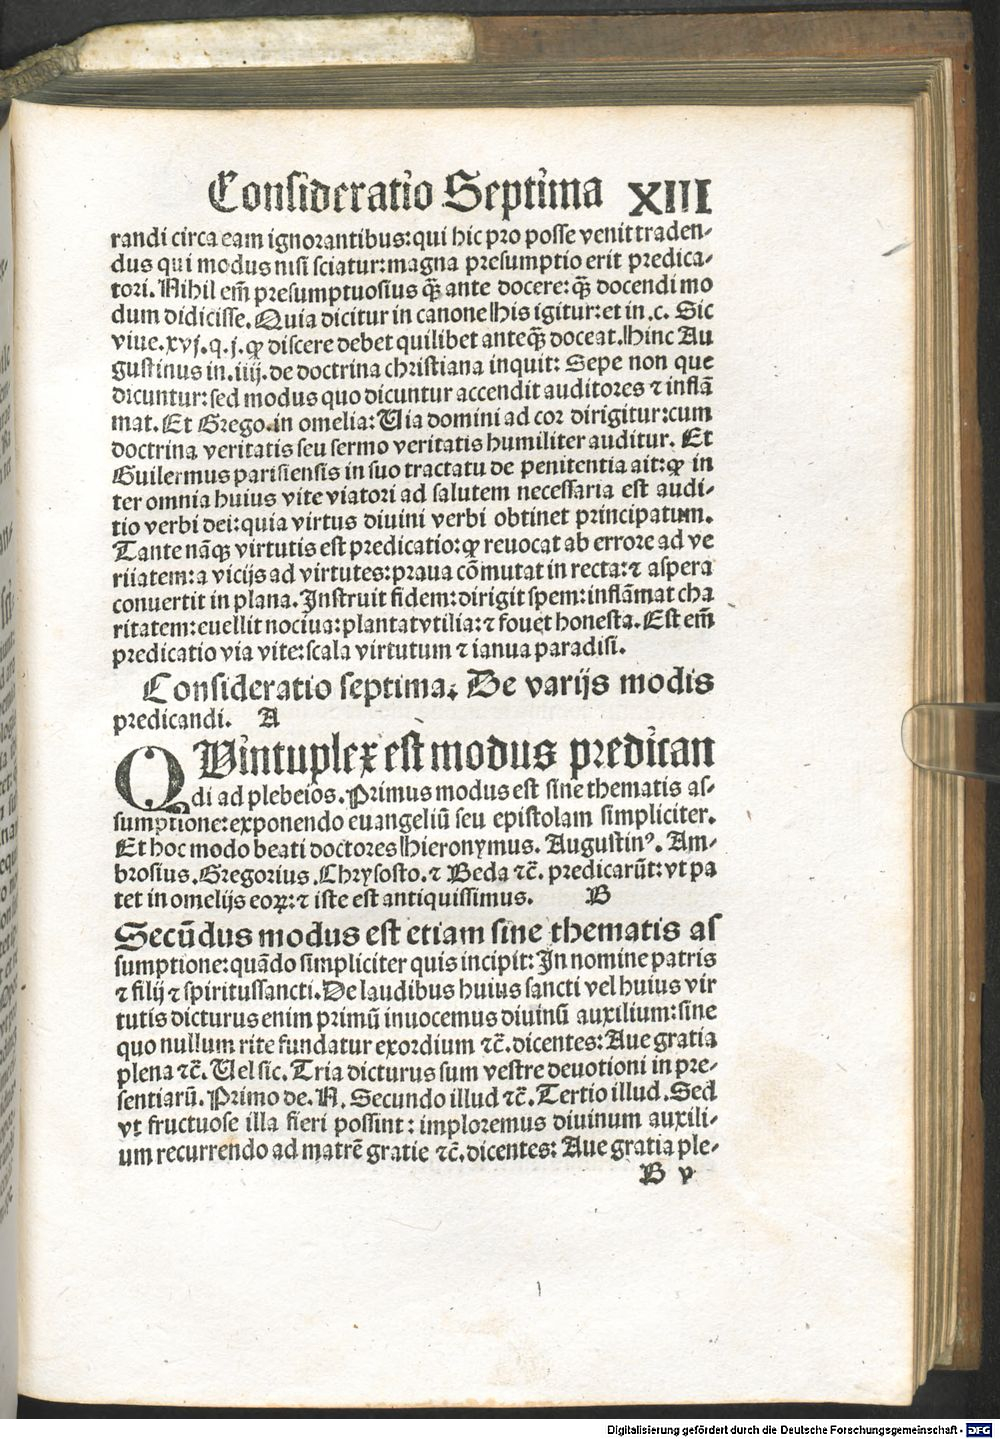 Consideratio Septima XIII
randi circa eam ignorantibus: qui hic pro posse venit traden-
dus qui modus nisi sciatur: magna presumptio erit predica-
tori. Nihil em̃ presumptuosius q̃ꝫ ante docere: q̃ꝫ docendi mo
dum didicisse. Quia dicitur in canone His igitur: et in .c. Sic
viue. xvj. q. j. ꝙ discere debet quilibet anteq̃ꝫ doceat. Hinc Au
gustinus in .iiij. de doctrina christiana inquit: Sepe non que
dicuntur: sed modus quo dicuntur accendit auditores ⁊ inflā
mat. Et Grego. in omelia: Uia domini ad cor dirigitur: cum
doctrina veritatis seu sermo veritatis humiliter auditur. Et
Guilermus parisiensis in suo tractatu de penitentia ait: ꝙ in
ter omnia huius vite viatori ad salutem necessaria est audi-
tio verbi dei: quia virtus diuini verbi obtinet principatum.
Tante nāqꝫ virtutis est predicatio: ꝙ reuocat ab errore ad ve
riiatem: a vicijs ad virtutes: praua cōmutat in recta: ⁊ aspera
conuertit in plana. Instruit fidem: dirigit spem: inflāmat cha
ritatem: euellit nociua: plantat vtilia: ⁊ fouet honesta. Est em̃
predicatio via vite: scala virtutum ⁊ ianua paradisi.
Consideratio septima. De varijs modis
predicandi. A
QUintuplex est modus predican
di ad plebeios. Primus modus est sine thematis as-
sumptione: exponendo euangeliū seu epistolam simpliciter.
Et hoc modo beati doctores Hieronymus. Augustinꝰ. Am-
brosius. Gregorius. Chrysosto. ⁊ Beda ⁊c̃. predicarūt: vt pa
tet in omelijs eoꝝ: ⁊ iste est antiquissimus. B
Secūdus modus est etiam sine thematis as
sumptione: quādo simpliciter quis incipit: In nomine patris
⁊ filij ⁊ spiritussancti. De laudibus huius sancti vel huius vir
tutis dicturus enim primū inuocemus diuinū auxilium: sine
quo nullum rite fundatur exordium ⁊c̃. dicentes: Aue gratia
plena ⁊c̃. Uel sic. Tria dicturus sum vestre deuotioni in pre-
sentiarū. Primo de. N. Secundo illud ⁊c̃. Tertio illud. Sed
vt fructuose illa fieri possint: imploremus diuinum auxili-
um recurrendo ad matrē gratie ⁊c̃. dicentes: Aue gratia ple-
B v
Digitalisierung gefördert durch die Deutsche Forschungsgemeinschaft - DFG